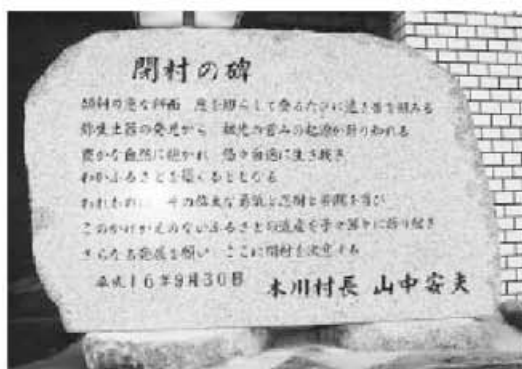 閉村の碑
の急な斜面 息を切らして登るたびに遠き昔を顧みる
弥生土器の発見から 祖先の営みの起源が
豊かな自然に抱かれ 悠々自適に生き抜き
わがふるさとを築く
われわれは その偉大な勇気と忍耐と を学び
このかけがえのないふるさとの遺産を子々孫々に語り継ぎ
さらなる発展を願い ここに閉村を決意する
平成16年9月30日 本川村長 山中安夫